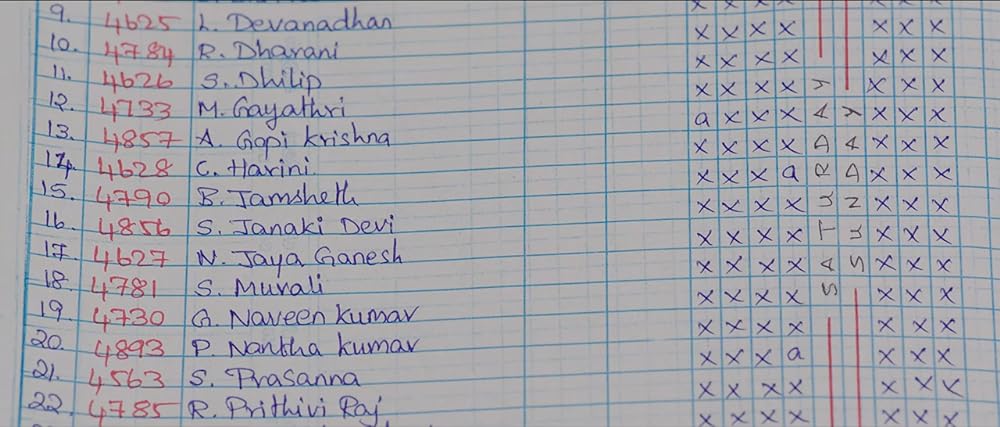 9. 4625 L. Devanadhan x x x x x x x
10. 4784 R. Dharani x x x x x x x
11. 4626 S. Dhilip x x x x x x x
12. 4733 M. Gayathri a x x x x x x
13. 4857 A. Gopi Krishna x x x x x x x
14. 4628 C. Harini x x x a x x x
15. 4790 B. Jamsheth x x x x x x x
16. 4856 S. Janaki Devi x x x x x x x
17. 4627 N. Jaya Ganesh x x x x x x x
18. 4781 S. Murali x x x x x x x
19. 4730 G. Naveen kumar x x x x x x x
20. 4893 P. Nantha kumar x x x a x x x
21. 4563 S. Prasanna x x x x x x x
22. 4785 R. Prithivi Raj x x x x x x x
SATURDAY
SUNDAY